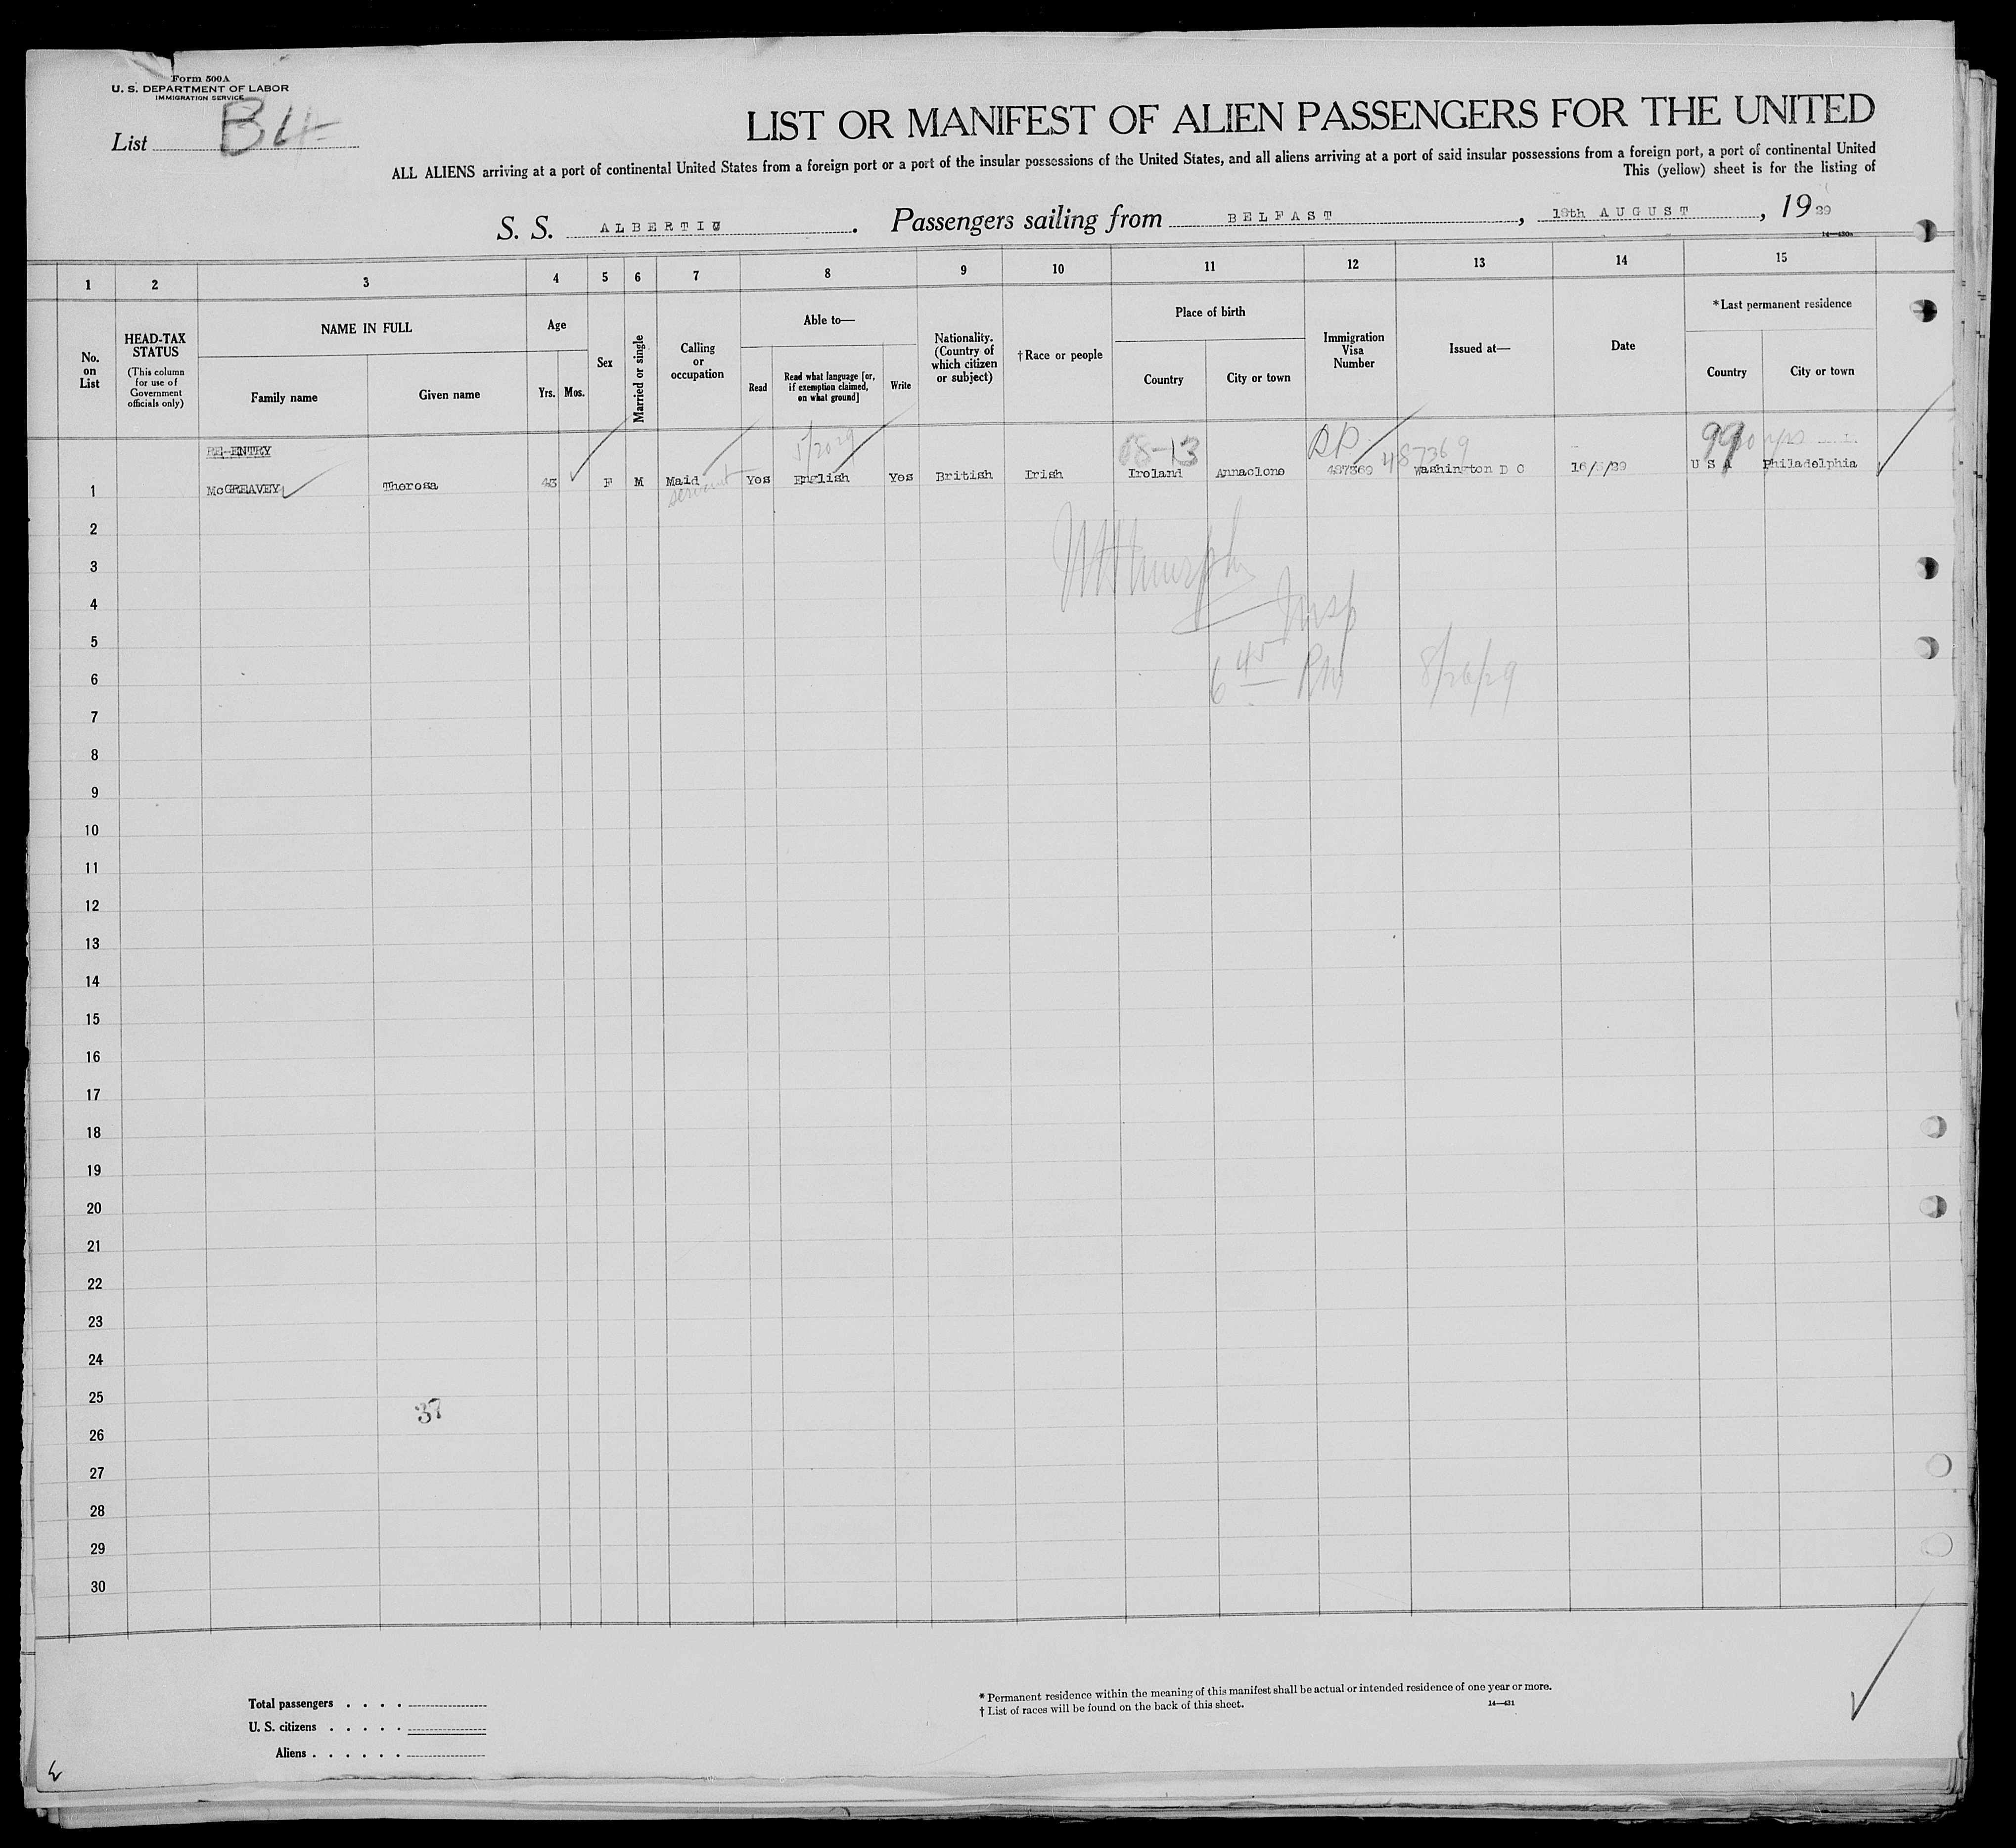 Form 500A
U. S. DEPARTMENT OF LABOR
IMMIGRATION SERVICE
List B4
LIST OR MANIFEST OF ALIEN PASSENGERS FOR THE UNITED
ALL ALIENS arriving at a port of continental United States from a foreign port or a port of the insular possessions of the United States, and all aliens arriving at a port of said insular possessions from a foreign port, a port of continental United
This (yellow) sheet is for the listing of
S. S. ALBERTIC. Passengers sailing from BELFAST, 18th AUGUST, 19 29
14—430a
1 2 3 4 5 6 7 8 9 10 11 12 13 14 15
No. on List
HEAD-TAX STATUS
(This column for use of Government officials only)
NAME IN FULL
Family name
Given name
Age
Yrs. Mos.
Sex
Married or single
Calling or occupation
Able to—
Read
Read what language [or, if exemption claimed, on what ground]
Write
Nationality. (Country of which citizen or subject)
†Race or people
Place of birth
Country
City or town
Immigration Visa Number
Issued at—
Date
*Last permanent residence
Country
City or town
RE-ENTRY
5/20 29
08-13
RP
487369
99
10 yrs
1 McGREAVEY Theresa 43 F M Maid Yes English Yes British Irish Ireland Annaclone 487369 Washington D C 16/5/29 U S A Philadelphia
servant
2
Murphy
3
4
Insp
5
6
6 45 PM 8/26/29
7
8
9
10
11
12
13
14
15
16
17
18
19
20
21
22
23
24
25
37
26
27
28
29
30
Total passengers . . . .
U. S. citizens . . . . .
Aliens . . . . . .
* Permanent residence within the meaning of this manifest shall be actual or intended residence of one year or more.
† List of races will be found on the back of this sheet.
14—431